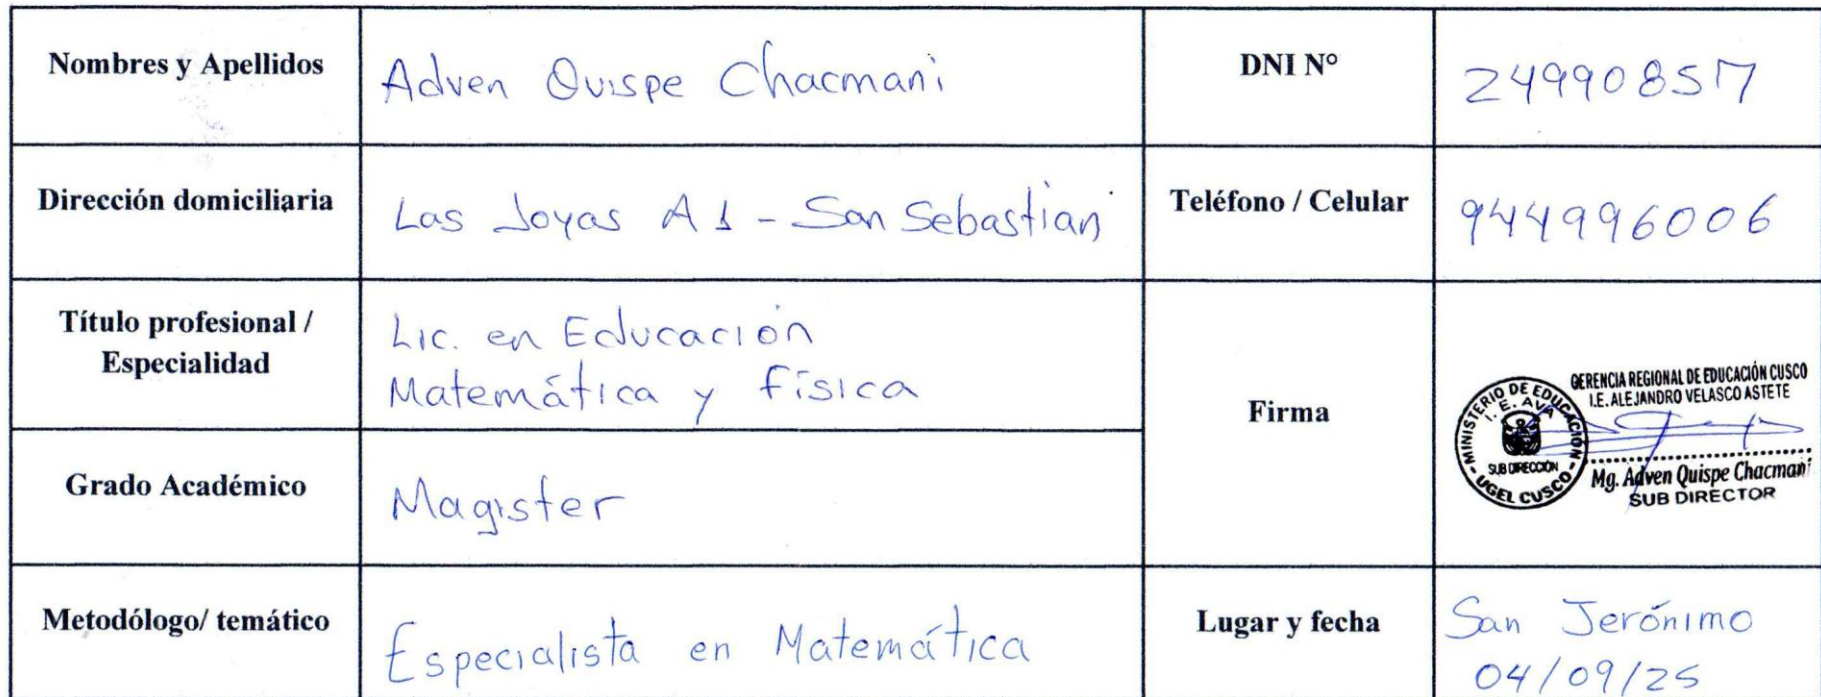 Nombres y Apellidos
Adven Quispe Chacmani
DNI N°
24990857
Dirección domiciliaria
Las Joyas A1 - San Sebastian
Teléfono / Celular
944996006
Título profesional /
Especialidad
Lic. en Educación
Matemática y Física
Firma
GERENCIA REGIONAL DE EDUCACIÓN CUSCO
I.E. ALEJANDRO VELASCO ASTETE
MINISTERIO DE EDUCACIÓN - UGEL CUSCO
I. E. AVA
SUB DIRECCIÓN
Mg. Adven Quispe Chacmani
SUB DIRECTOR
Grado Académico
Magister
Metodólogo/ temático
Especialista en Matemática
Lugar y fecha
San Jerónimo
04/09/25